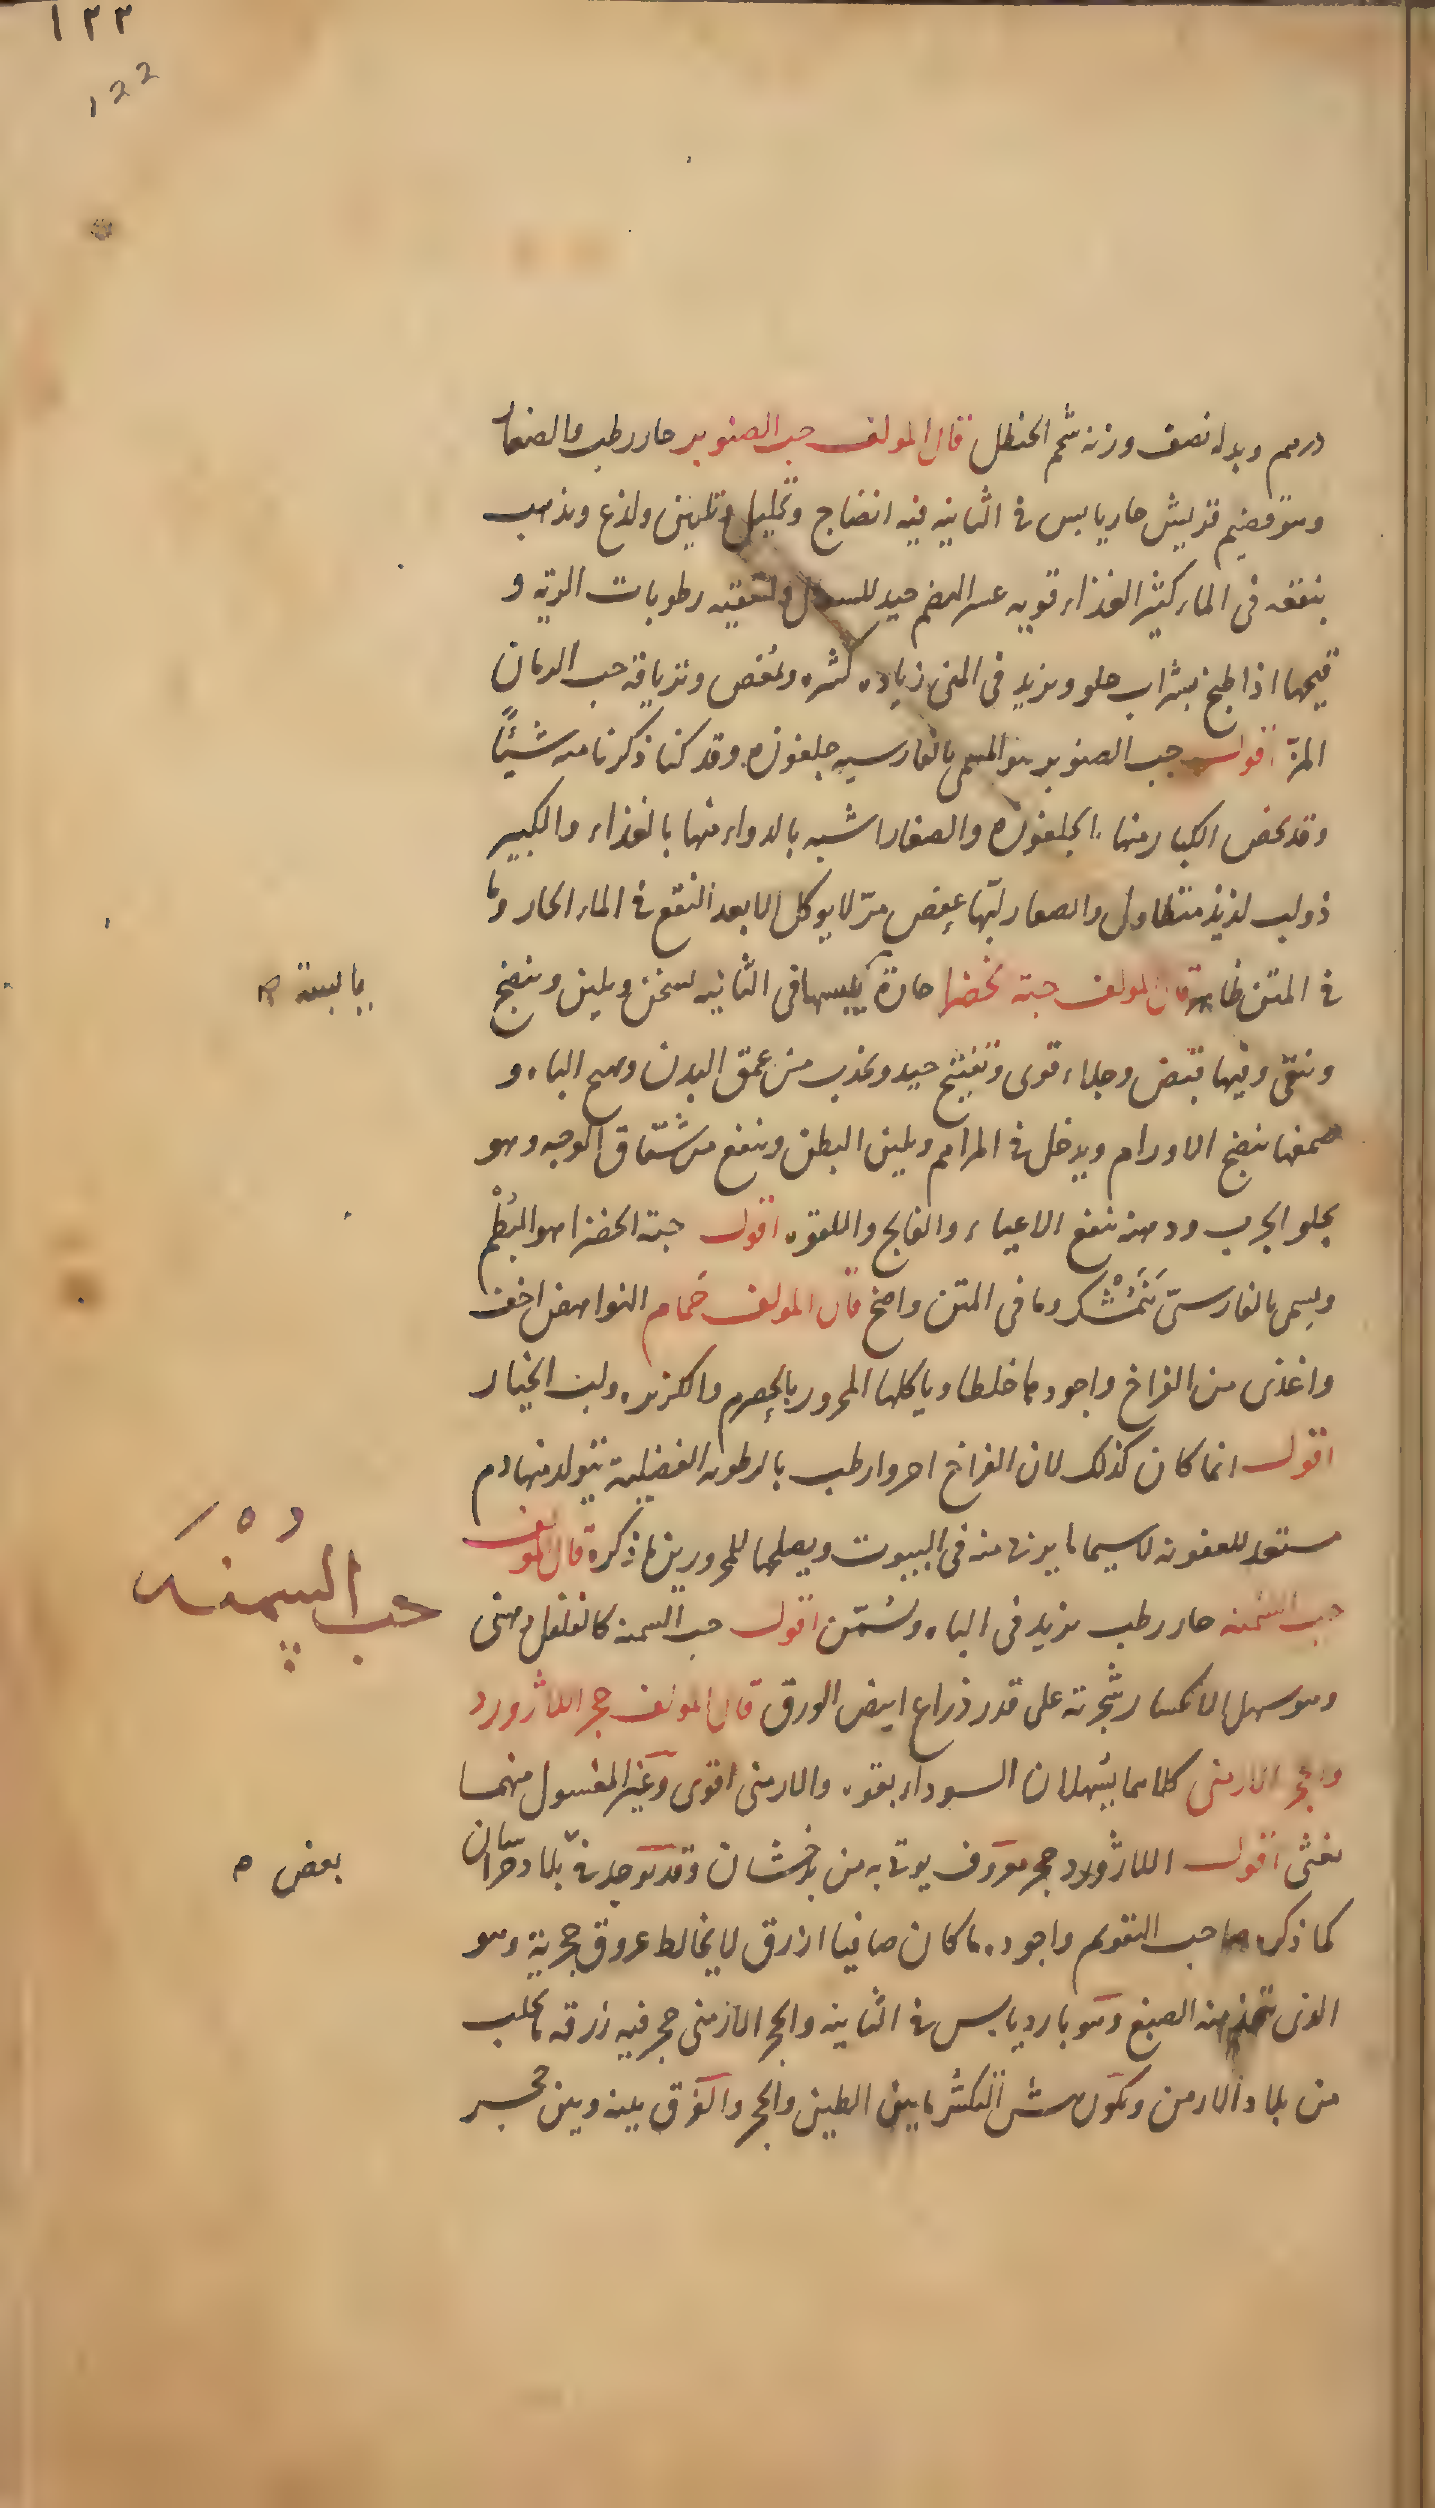 ١٢٢
122
درهم وبدله نصف وزنه شحم الحنظل قال المولف حب الصنوبر حار رطب والصغار
وهو قضيم قريش حار يابس فى الثانيه فيه انضاج وتحليل وتليين ولذع ويذهب
بنقعه فى الماء كثير الغذاء قويه عسر الهضم جيد للسعال ولتنقيه رطوبات الريه و
قيحها اذا طبخ بشراب حلو ويزيد فى المنى زياده كثيره ويمغص وترياقه حب الرمان
المزّ اقول حب الصنوبر هو المسمى بالفارسيه جلغوزه وقد كنا ذكرنا منه شيئًا
وقد يخص الكبار منها بالجلغوزه والصغار اشبه بالدواء منها بالغذاء والكبير
ذو لب لذيذ متطاول والصغار لبّها عفص مرّ لا يوكل الا بعد النقع فى الماء الحار وما
فى المتن ظاهر قال المولف حبة خضرا حارة يبسها فى الثانيه يسخن ويلين وينضج
يابسة
وينقى وفيها قبض وجلاء قوى وتفتيح جيد ويجذب من عمق البدن ويهيج الباه و
صمغها ينضج الاورام ويدخل فى المراهم ويلين البطن وينفع من شقاق الوجه وهو
يجلو الجرب ودهنه ينفع الاعياء والفالج واللقوه اقول حبة الخضرا هو البُطْم
ويسمى بالفارسىّ بَنَمُشْكر وما فى المتن واضح قال المولف حَمام النواهض اخف
واغذى من الفراخ واجود ما خلطا وياكلها المحرور بالحصرم والكزبره ولب الخيار
اقول انما كان كذلك لان الفراخ احر وارطب بالرطوبه الفضلية يتولد منها دم
مستعد للعفونه لا سيما ما يربى منه فى البيوت ويصلحها للمحرورين ما ذكره قال المولف
حب السمنه حار رطب يزيد فى الباه ويُسمّن اقول حب السمنه كالفلفل دهنى
حب السُمْنَه
وهو سهل الانكسار شجرته على قدر ذراع ابيض الورق قال المولف حجر اللاژورد
وحجر الارمنى كلاهما يسهلان السوداء بقوه والارمنى اقوى وغير المغسول منهما
يغثى اقول اللاژورد حجر معروف يوتى به من بدخشان وقد توجد فى بلاد خراسان
بعض
كما ذكره صاحب التقويم واجوده ما كان صافيا ازرق لا يخالط عروق حجرية وهو
الذى يتخذ منه الصبغ وهو بارد يابس فى الثانيه والحجر الارمنى حجر فيه زرقه يجلب
من بلاد الارمن ويكون هش المكسر ما بين الطين والحجر والفرق بينه وبين حجر